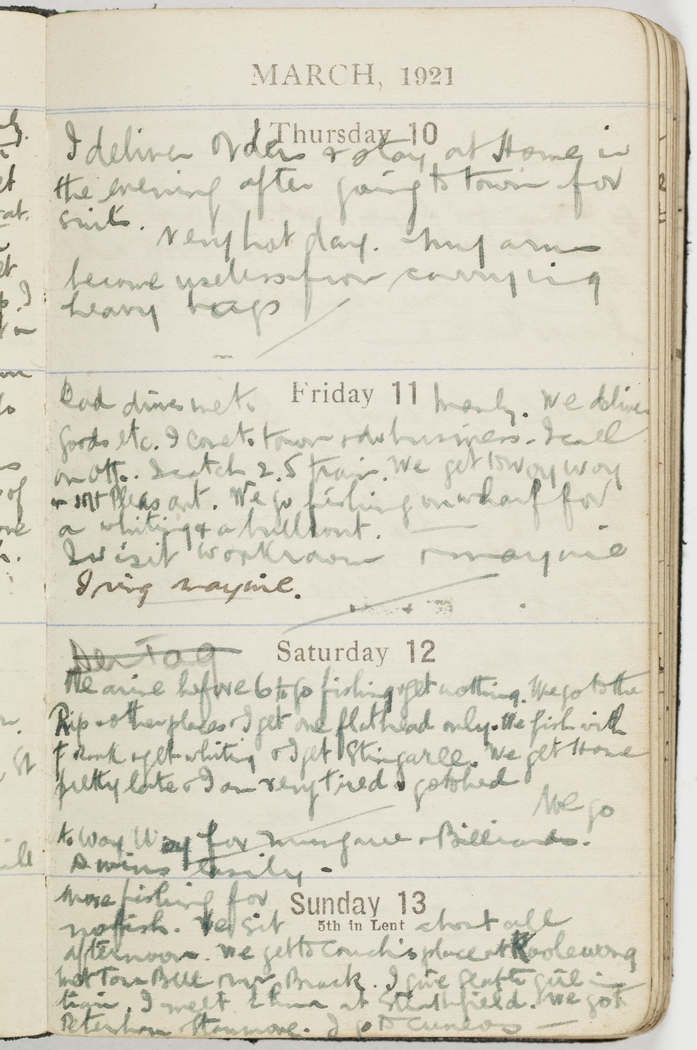 MARCH, 1921
Thursday 10
I deliver orders & stay at Home in
the evening after going to town for
suits. Very hot day. My arms
become useless from carrying
heavy bags
Friday 11
Dad drives me to Manly. We deliver
goods etc. I come to town & do business. I call
on. I catch 2.5 train. We get to Woy Woy
& Mt Pleasant. We go fishing on wharf for
a whiting & a bullrout.
I visit & maynie
I ring maynie.
Der Tag Saturday 12
We arise before 6 to go fishing & get nothing. We go to the
Rip & other places & I get one flathead only. We fish with
Frank & get whiting & I get Stingaree. We get Home
pretty late & I am very tired & go to bed
We go
to Woy Woy for & Billiards.
wins easily.
Sunday 13
5th in Lent
More fishing for
no fish. We sit about all
afternoon. We get to Couch's place at Koolewong
met Tom Bell Brack. I give girl in
train. I meet at Strathfield. We got
Petersham Stanmore. I go to